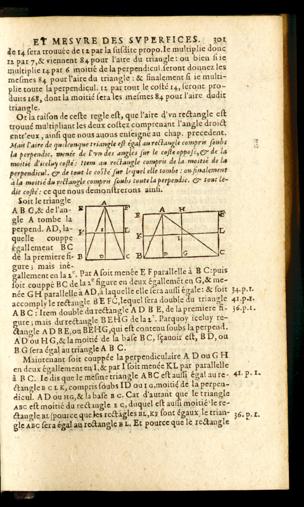 ET MESVRE DES SVPERFICES. 301
de 14 sera trouuée de 12 par la susdite propo. Ie multiplie donc
12 par 7, & viennent 84 pour l'aire du triangle: ou bien si ie
multiplie 14 par 6 moitié de la perpendicul. seront donnez les
mesmes 84 pour l'aire du triangle: & finalement si ie multi-
plie toute la perpendicul. 12 par tout le costé 14, seront pro-
duits 168, dont la moitié sera les mesmes 84 pour l'aire dudit
triangle.
Or la raison de ceste regle est, que l'aire d'vn rectangle est
trouué multipliant les deux costez comprenant l'angle droict
entr'eux, ainsi que nous auons enseigné au chap. precedent.
Mais l'aire de quelconque triangle est égal au rectangle compris soubs
la perpendic. menée de l'vn des angles sur le costé opposé, & de la
moitié d'iceluy costé: Item au rectangle compris de la moitié de la
perpendicul. & de tout le costé sur lequel elle tombe: ou finalement
à la moitié du rectangle compris soubs toute la perpendic. & tout le-
dit costé: ce que nous demonstrerons ainsi.
Soit le triangle
A B C, & de l'an-
gle A tombe la
perpend. AD, la-
quelle couppe
également BC
de la premiere fi-
gure; mais iné-
E A F
K I L
B D C
E A H F
K I L
B D G C
galement en la 2ᵉ. Par A soit menée E F parallelle à B C: puis
soit couppé BC de la 2ᵉ figure en deux égalemēt en G, & me-
née GH parallelle à AD, à laquelle elle sera aussi égale: & soit 34. p. 1.
accomply le rectangle BE FC, lequel sera double du triangle 41. p. 1.
A B C: Item double du rectangle A D B E, de la premiere fi- 36. p. 1.
gure; mais du rectangle BEHG de la 2ᵉ. Parquoy iceluy re-
ctangle AD BE, ou BEHG, qui est contenu soubs la perpend.
AD ou HG, & la moitié de la base BC, sçauoir est, BD, ou
BG sera égal au triangle A B C.
Maintenant soit couppée la perpendiculaire A D ou G H
en deux également en I, & par I soit menée KL par parallelle
à B C. Ie dis que le mesme triangle ABC est aussi égal au re- 41. p. 1.
ctangle B C L K, compris soubs ID ou I G, moitié de la perpen-
dicul. AD ou HG, & la base B C. Car d'autant que le triangle
ABC est moitié du rectangle E C, duquel est aussi moitié le re-
ctangle BL (pource que les rectāgles BL, KF sont égaux, le trian- 36. p. 1.
gle ABC sera égal au rectangle B L. Et pource que le rectāngle